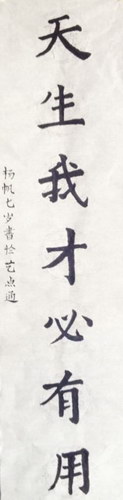 天生我才必有用
杨帆七岁书于艺点通